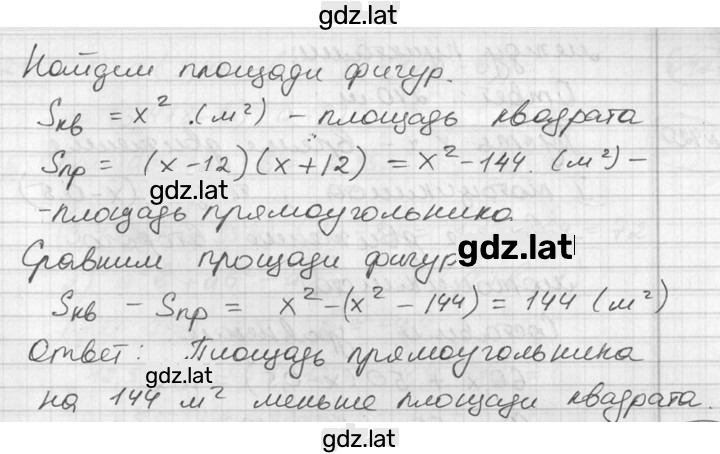 gdz.lat
Найдем площади фигур.
Sкв = x² (м²) – площадь квадрата
Sпр = (x-12)(x+12) = x²-144. (м²) –
gdz.lat
-площадь прямоугольника.
Сравним прощади фигур
gdz.lat
Sкв - Sпр = x²-(x²-144) = 144 (м²)
Ответ: Площадь прямоугольника
gdz.lat
на 144 м² меньше площади квадрата.
gdz.lat